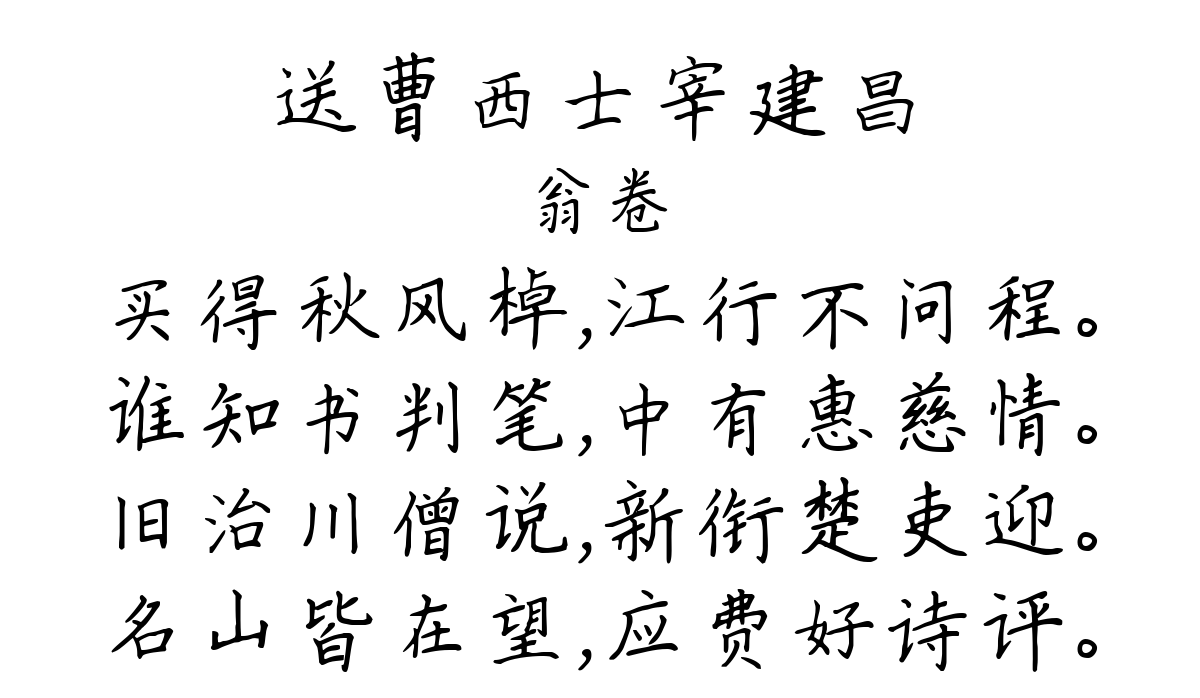 送曹西士宰建昌
翁卷
买得秋风棹,江行不问程。
谁知书判笔,中有惠慈情。
旧治川僧说,新衔楚吏迎。
名山皆在望,应费好诗评。